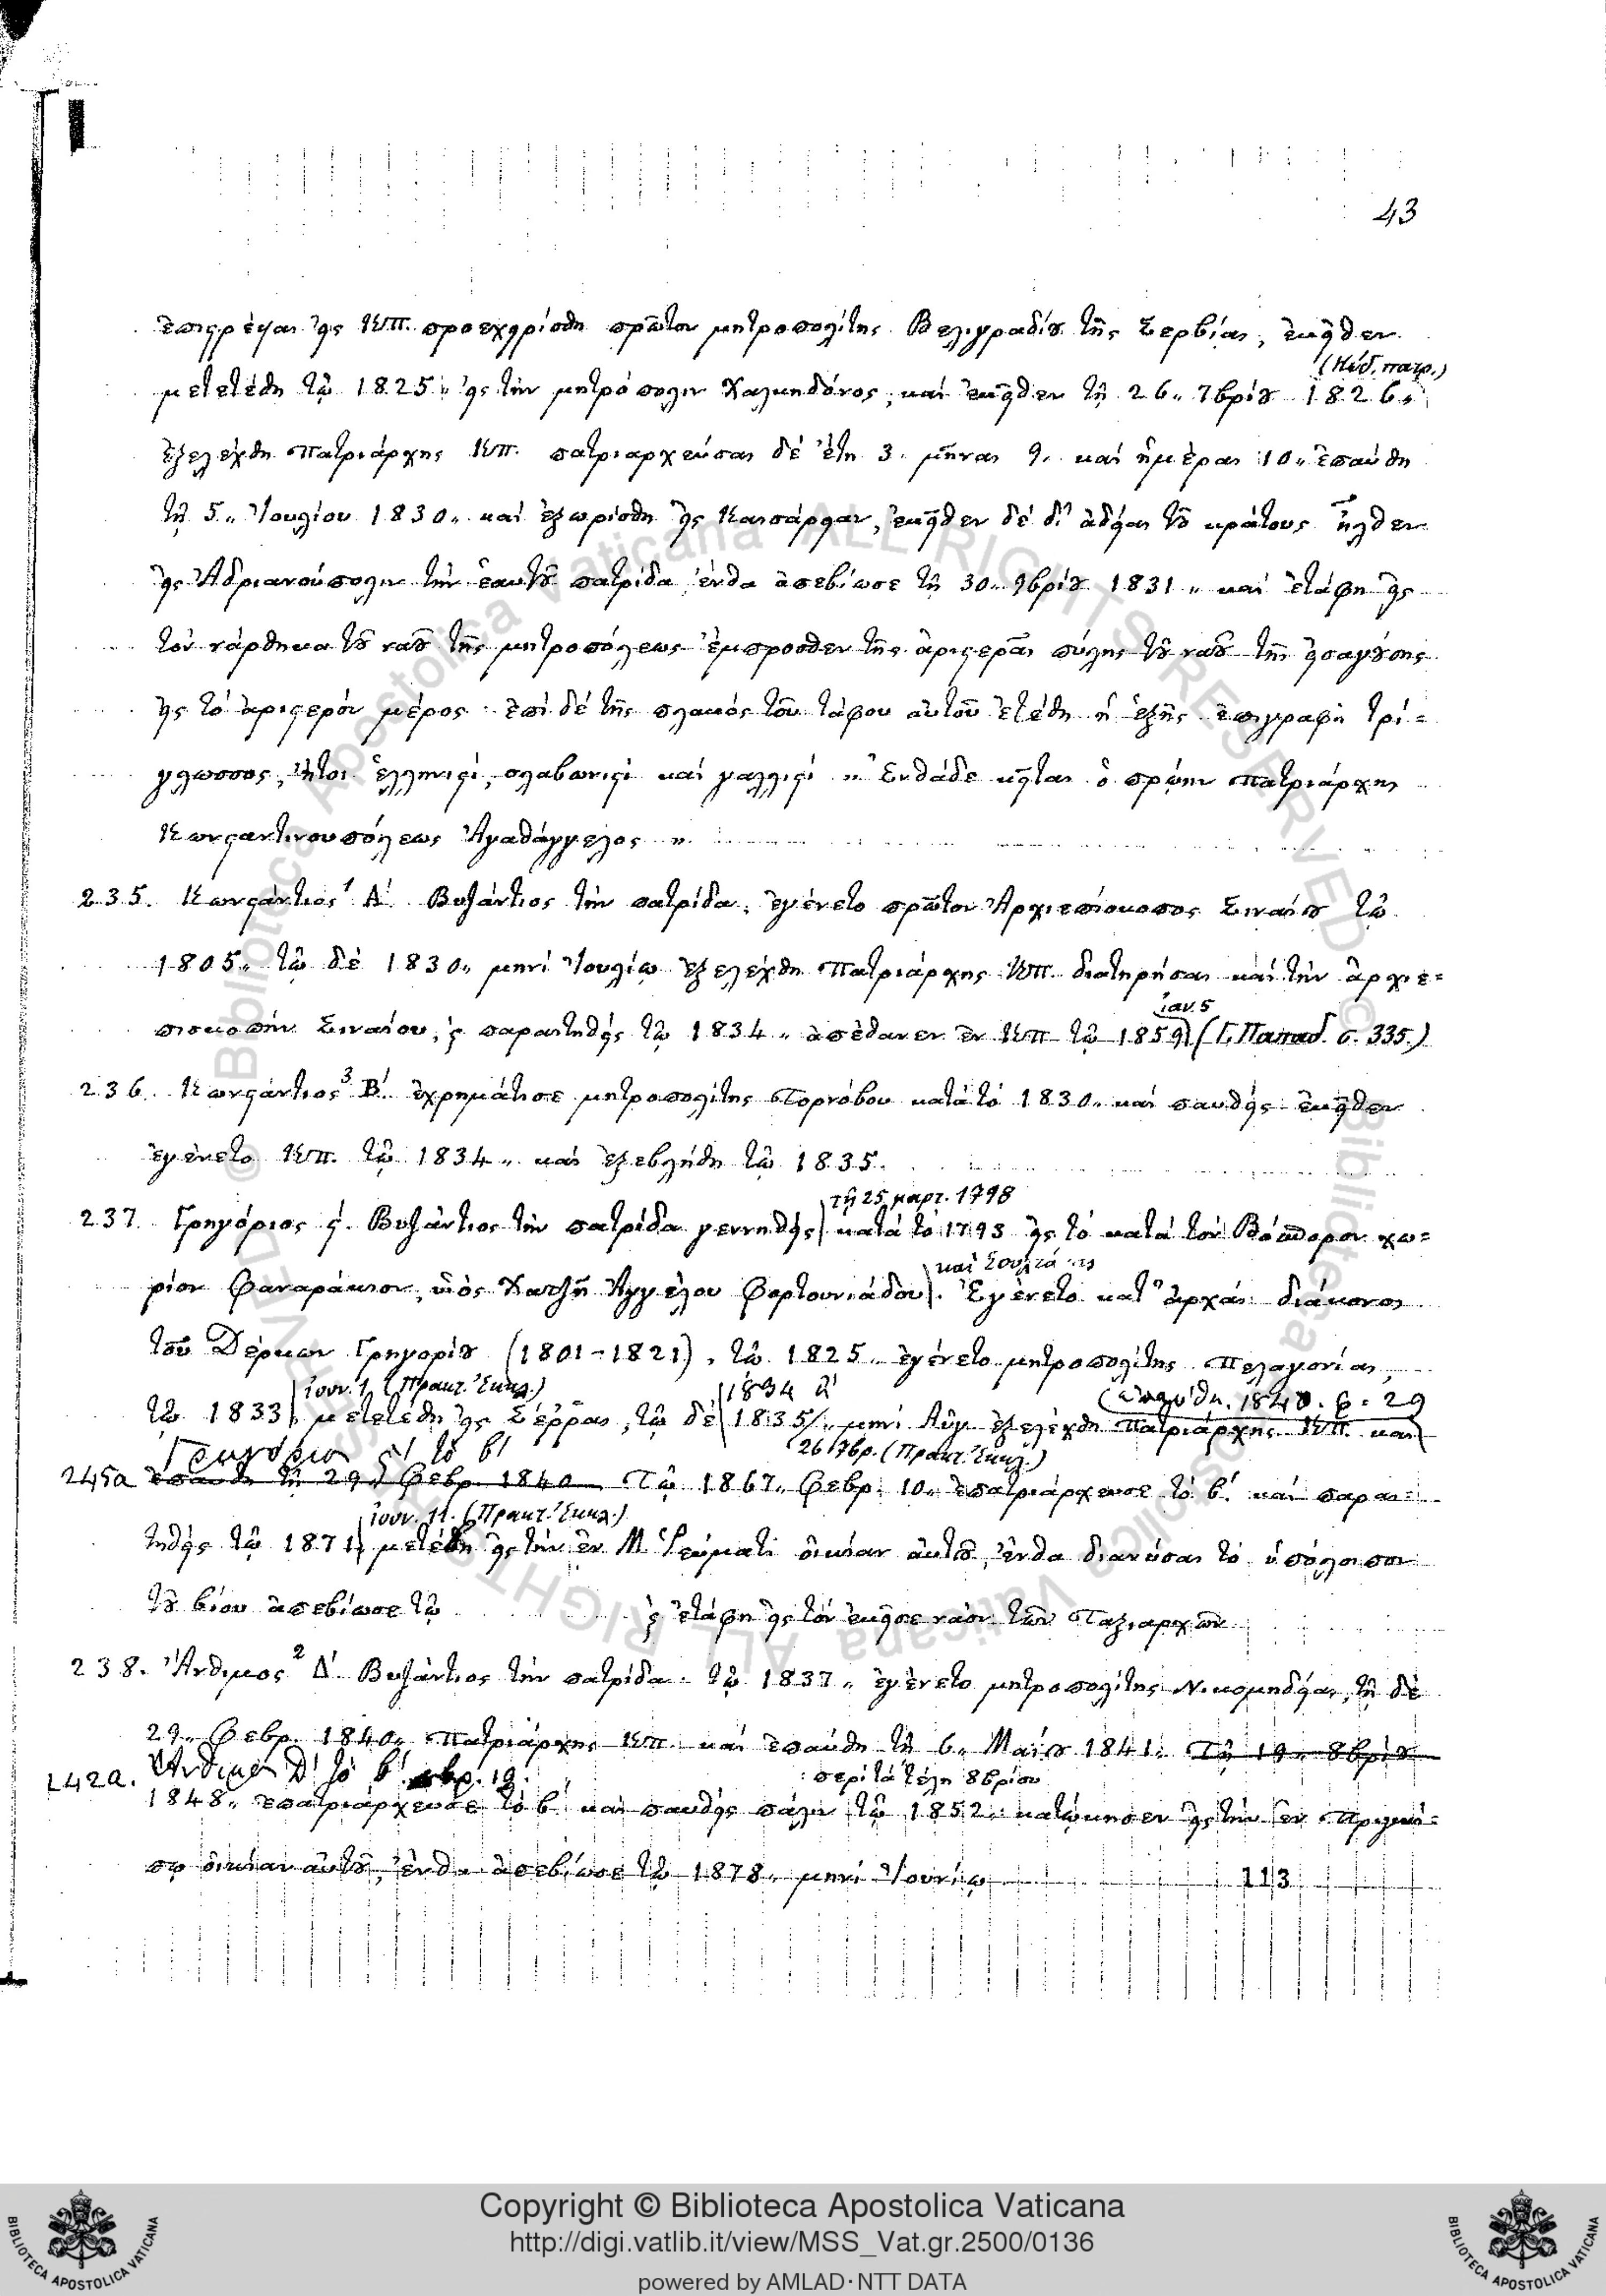 43
ἐπιστρέψας εἰς Κπ. προεχειρίσθη πρῶτον μητροπολίτης Βελιγραδίου τῆς Σερβίας, ἐκεῖθεν
(Κώδ. πατρ.)
μετετέθη τῷ 1825 „ εἰς τὴν μητρόπολιν Χαλκηδόνος, καὶ ἐκεῖθεν τῇ 26 „ 7βρίου 1826 „
ἐξελέχθη Πατριάρχης Κπ. πατριαρχεύσας δὲ ἔτη 3. μῆνας 9. καὶ ἡμέρας 10 „ ἐπαύθη
τῇ 5 „ Ἰουλίου 1830 „ καὶ ἐξωρίσθη εἰς Καισάρειαν, ἐκεῖθεν δὲ δι' ἀδείας τοῦ κράτους ἦλθεν
εἰς Ἀδριανούπολιν τὴν ἑαυτοῦ πατρίδα ἔνθα ἀπεβίωσε τῇ 30 „ 9βρίου 1831 „ καὶ ἐτάφη εἰς
τὸν νάρθηκα τοῦ ναοῦ τῆς μητροπόλεως ἔμπροσθεν τῆς ἀριστερᾶς πύλης τοῦ ναοῦ τῆς εἰσαγούσης
εἰς τὸ ἀριστερὸν μέρος · ἐπὶ δὲ τῆς πλακὸς τοῦ τάφου αὐτοῦ ἐτέθη ἡ ἑξῆς ἐπιγραφὴ τρί=
γλωσσος, ἤτοι ἑλληνιστί, σλαβωνιστί καὶ γαλλιστί „ Ἐνθάδε κεῖται ὁ πρώην Πατριάρχης
Κωνσταντινουπόλεως Ἀγαθάγγελος „
235. Κωνστάντιος 1 Α' Βυζάντιος τὴν πατρίδα, ἐγένετο πρῶτον Ἀρχιεπίσκοπος Σιναίου τῷ
1805 „ τῷ δὲ 1830 „ μηνὶ Ἰουλίῳ ἐξελέχθη Πατριάρχης Κπ. διατηρήσας καὶ τὴν ἀρχιε=
ἰαν. 5
πισκοπὴν Σιναίου, ϗ παραιτηθεὶς τῷ 1834 „ ἀπέθανεν ἐν Κπ τῷ 1859 (Γ. Παπαδ. σ. 335.)
236. Κωνστάντιος 3 Β' ἐχρημάτισε μητροπολίτης Τορνόβου κατὰ τὸ 1830 „ καὶ παυθεὶς ἐκεῖθεν
ἐγένετο Κπ. τῷ 1834 „ καὶ ἐξεβλήθη τῷ 1835.
τῇ 25 μαρτ. 1798
237. Γρηγόριος ϛ'. Βυζάντιος τὴν πατρίδα γεννηθεὶς κατὰ τὸ 1793 εἰς τὸ κατὰ τὸν Βόσπορον χω=
καὶ
ρίον Φαναράκιον, υἱὸς Χατζῆ Ἀγγέλου Φορτουνιάδου. Ἐγένετο κατ' ἀρχὰς διάκονος
τοῦ Δέρκων Γρηγορίου (1801-1821), τῷ 1825 „ ἐγένετο μητροπολίτης Πελαγονίας,
ἰουν. 1 (Πρακτ. Ἐκκλ.) 1834 (ἐπαύθη. 1840. φ. 29
τῷ 1833 μετετέθη εἰς Σέρρας, τῷ δὲ 1835 „ μηνὶ Αὐγ. ἐξελέχθη Πατριάρχης Κπ. καὶ
Γρηγόριος ϛ' τὸ β' 26 7βρ. (Πρακτ. Ἐκκλ.)
245α ἐπαύθη τῇ 29 Φεβρ. 1840 Τῷ 1867 „ Φεβρ. 10 „ ἐπατριάρχευσε τὸ β'. καὶ παραι=
ἰουν. 11. (Πρακτ. Ἐκκλ.)
τηθεὶς τῷ 1871, μετέβη εἰς τὴν ἐν Μ. Ῥεύματι οἰκίαν αὐτοῦ, ἔνθα διανύσας τὸ ὑπόλοιπον
τοῦ βίου ἀπεβίωσε τῷ ϗ ἐτάφη εἰς τὸν ἐκεῖσε ναὸν τῶν Ταξιαρχῶν
238. Ἄνθιμος 2 Δ' Βυζάντιος τὴν πατρίδα. τῷ 1837 „ ἐγένετο μητροπολίτης Νικομηδείας, τῇ δὲ
29 „ Φεβρ. 1840 „ Πατριάρχης Κπ. καὶ ἐπαύθη τῇ 6 „ Μαΐου 1841. Τῇ 19 „ 8βρίου
242α. Ἄνθιμος Δ' τὸ β'. 8βρ. 19. περὶ τὰ τέλη 8βρίου
1848 „ ἐπατριάρχευσε τὸ β' καὶ παυθεὶς πάλιν τῷ 1852 „ κατῴκησεν εἰς τὴν ἐν Πριγκί=
πῳ οἰκίαν αὐτοῦ, ἔνθα ἀπεβίωσε τῷ 1878 „ μηνὶ Ἰουνίῳ 113
© Biblioteca Apostolica Vaticana ALL RIGHTS RESERVED
Copyright © Biblioteca Apostolica Vaticana
http://digi.vatlib.it/view/MSS_Vat.gr.2500/0136
powered by AMLAD·NTT DATA
BIBLIOTECA APOSTOLICA VATICANA
BIBLIOTECA APOSTOLICA VATICANA